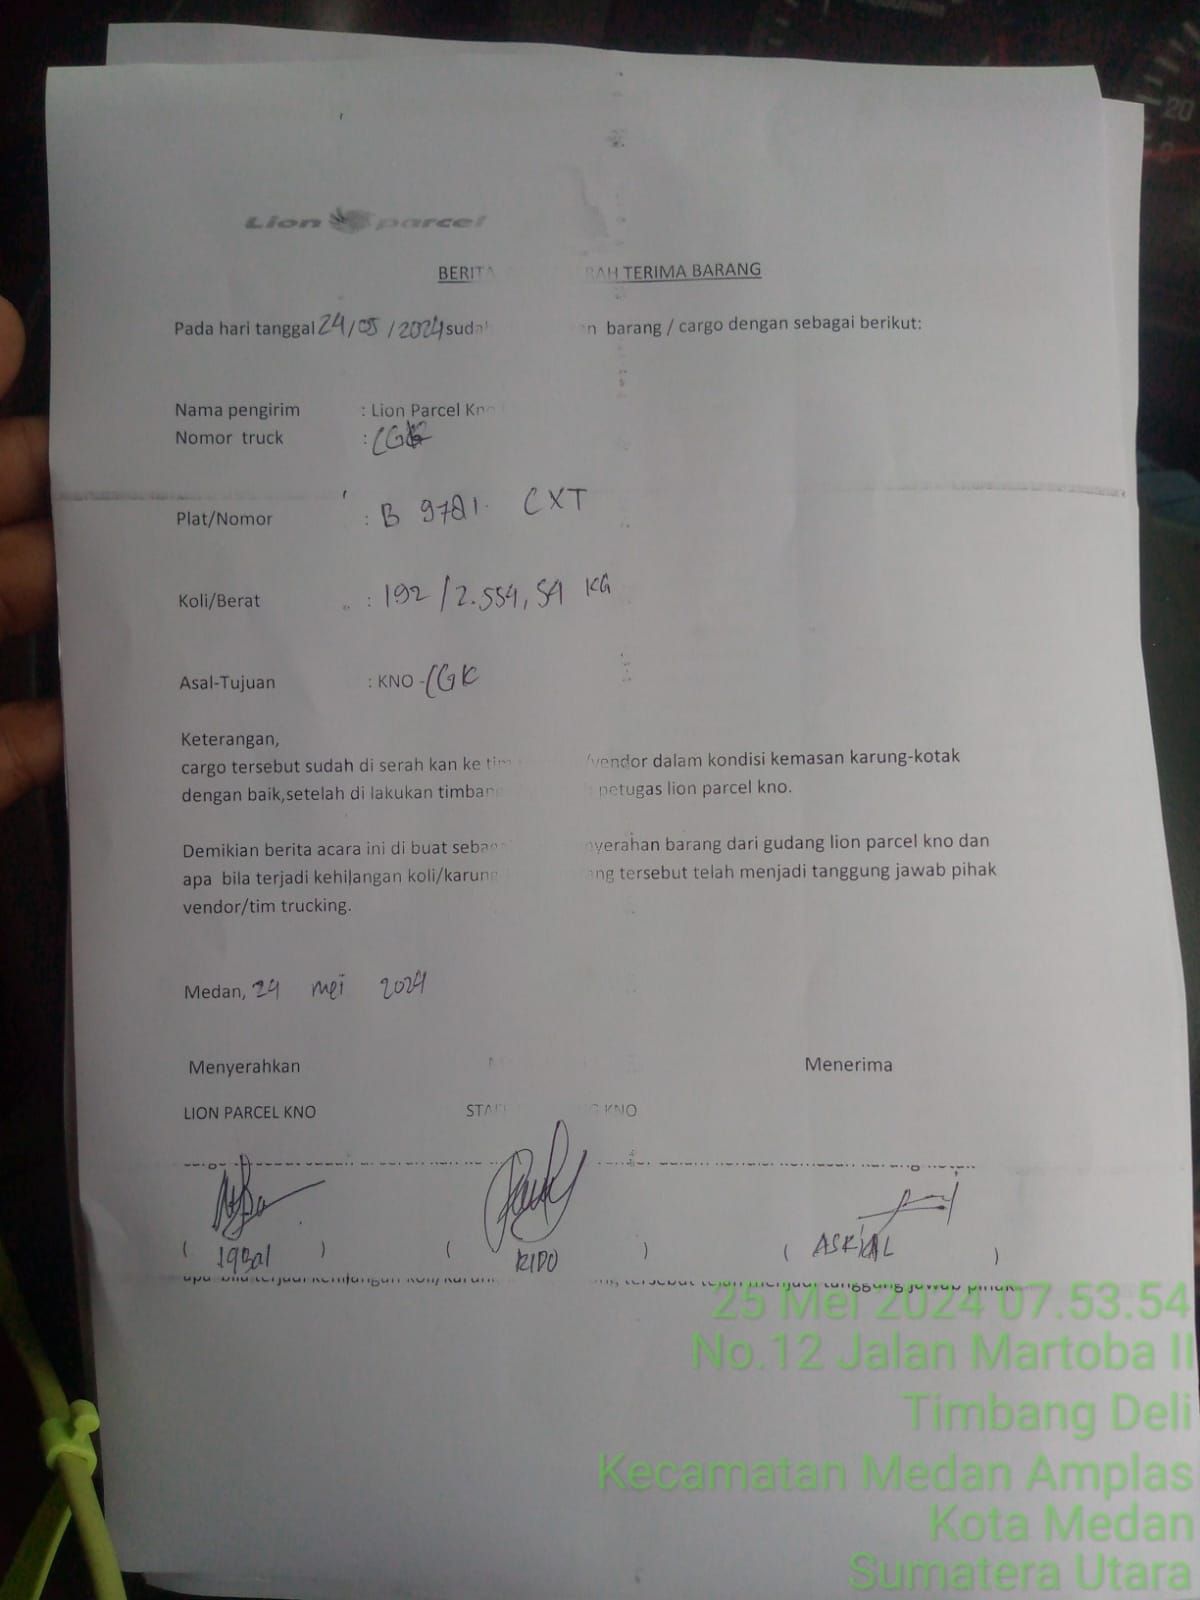 Lion parcel
BERITA RAH TERIMA BARANG
Pada hari tanggal 24/05/2024 sudah barang / cargo dengan sebagai berikut:
Nama pengirim : Lion Parcel Kno
Nomor truck : CGK
Plat/Nomor : B 9781 CXT
Koli/Berat : 192/2.554,54 KG
Asal-Tujuan : KNO - CGK
Keterangan,
cargo tersebut sudah di serah kan ke tim /vendor dalam kondisi kemasan karung-kotak
dengan baik,setelah di lakukan timbang petugas lion parcel kno.
Demikian berita acara ini di buat sebag nyerahan barang dari gudang lion parcel kno dan
apa bila terjadi kehilangan koli/karung ang tersebut telah menjadi tanggung jawab pihak
vendor/tim trucking.
Medan, 24 mei 2024
Menyerahkan Menerima
LION PARCEL KNO STAF G KNO
( IQBal ) ( RIDO ) ( ASRIAL )
25 Mei 2024 07.53.54
No.12 Jalan Martoba II
Timbang Deli
Kecamatan Medan Amplas
Kota Medan
Sumatera Utara